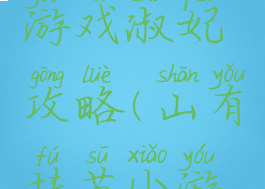 游戏淑妃
gōng lüè shān yǒu
攻略(山有
fú sū xiǎo yóu
扶苏小游